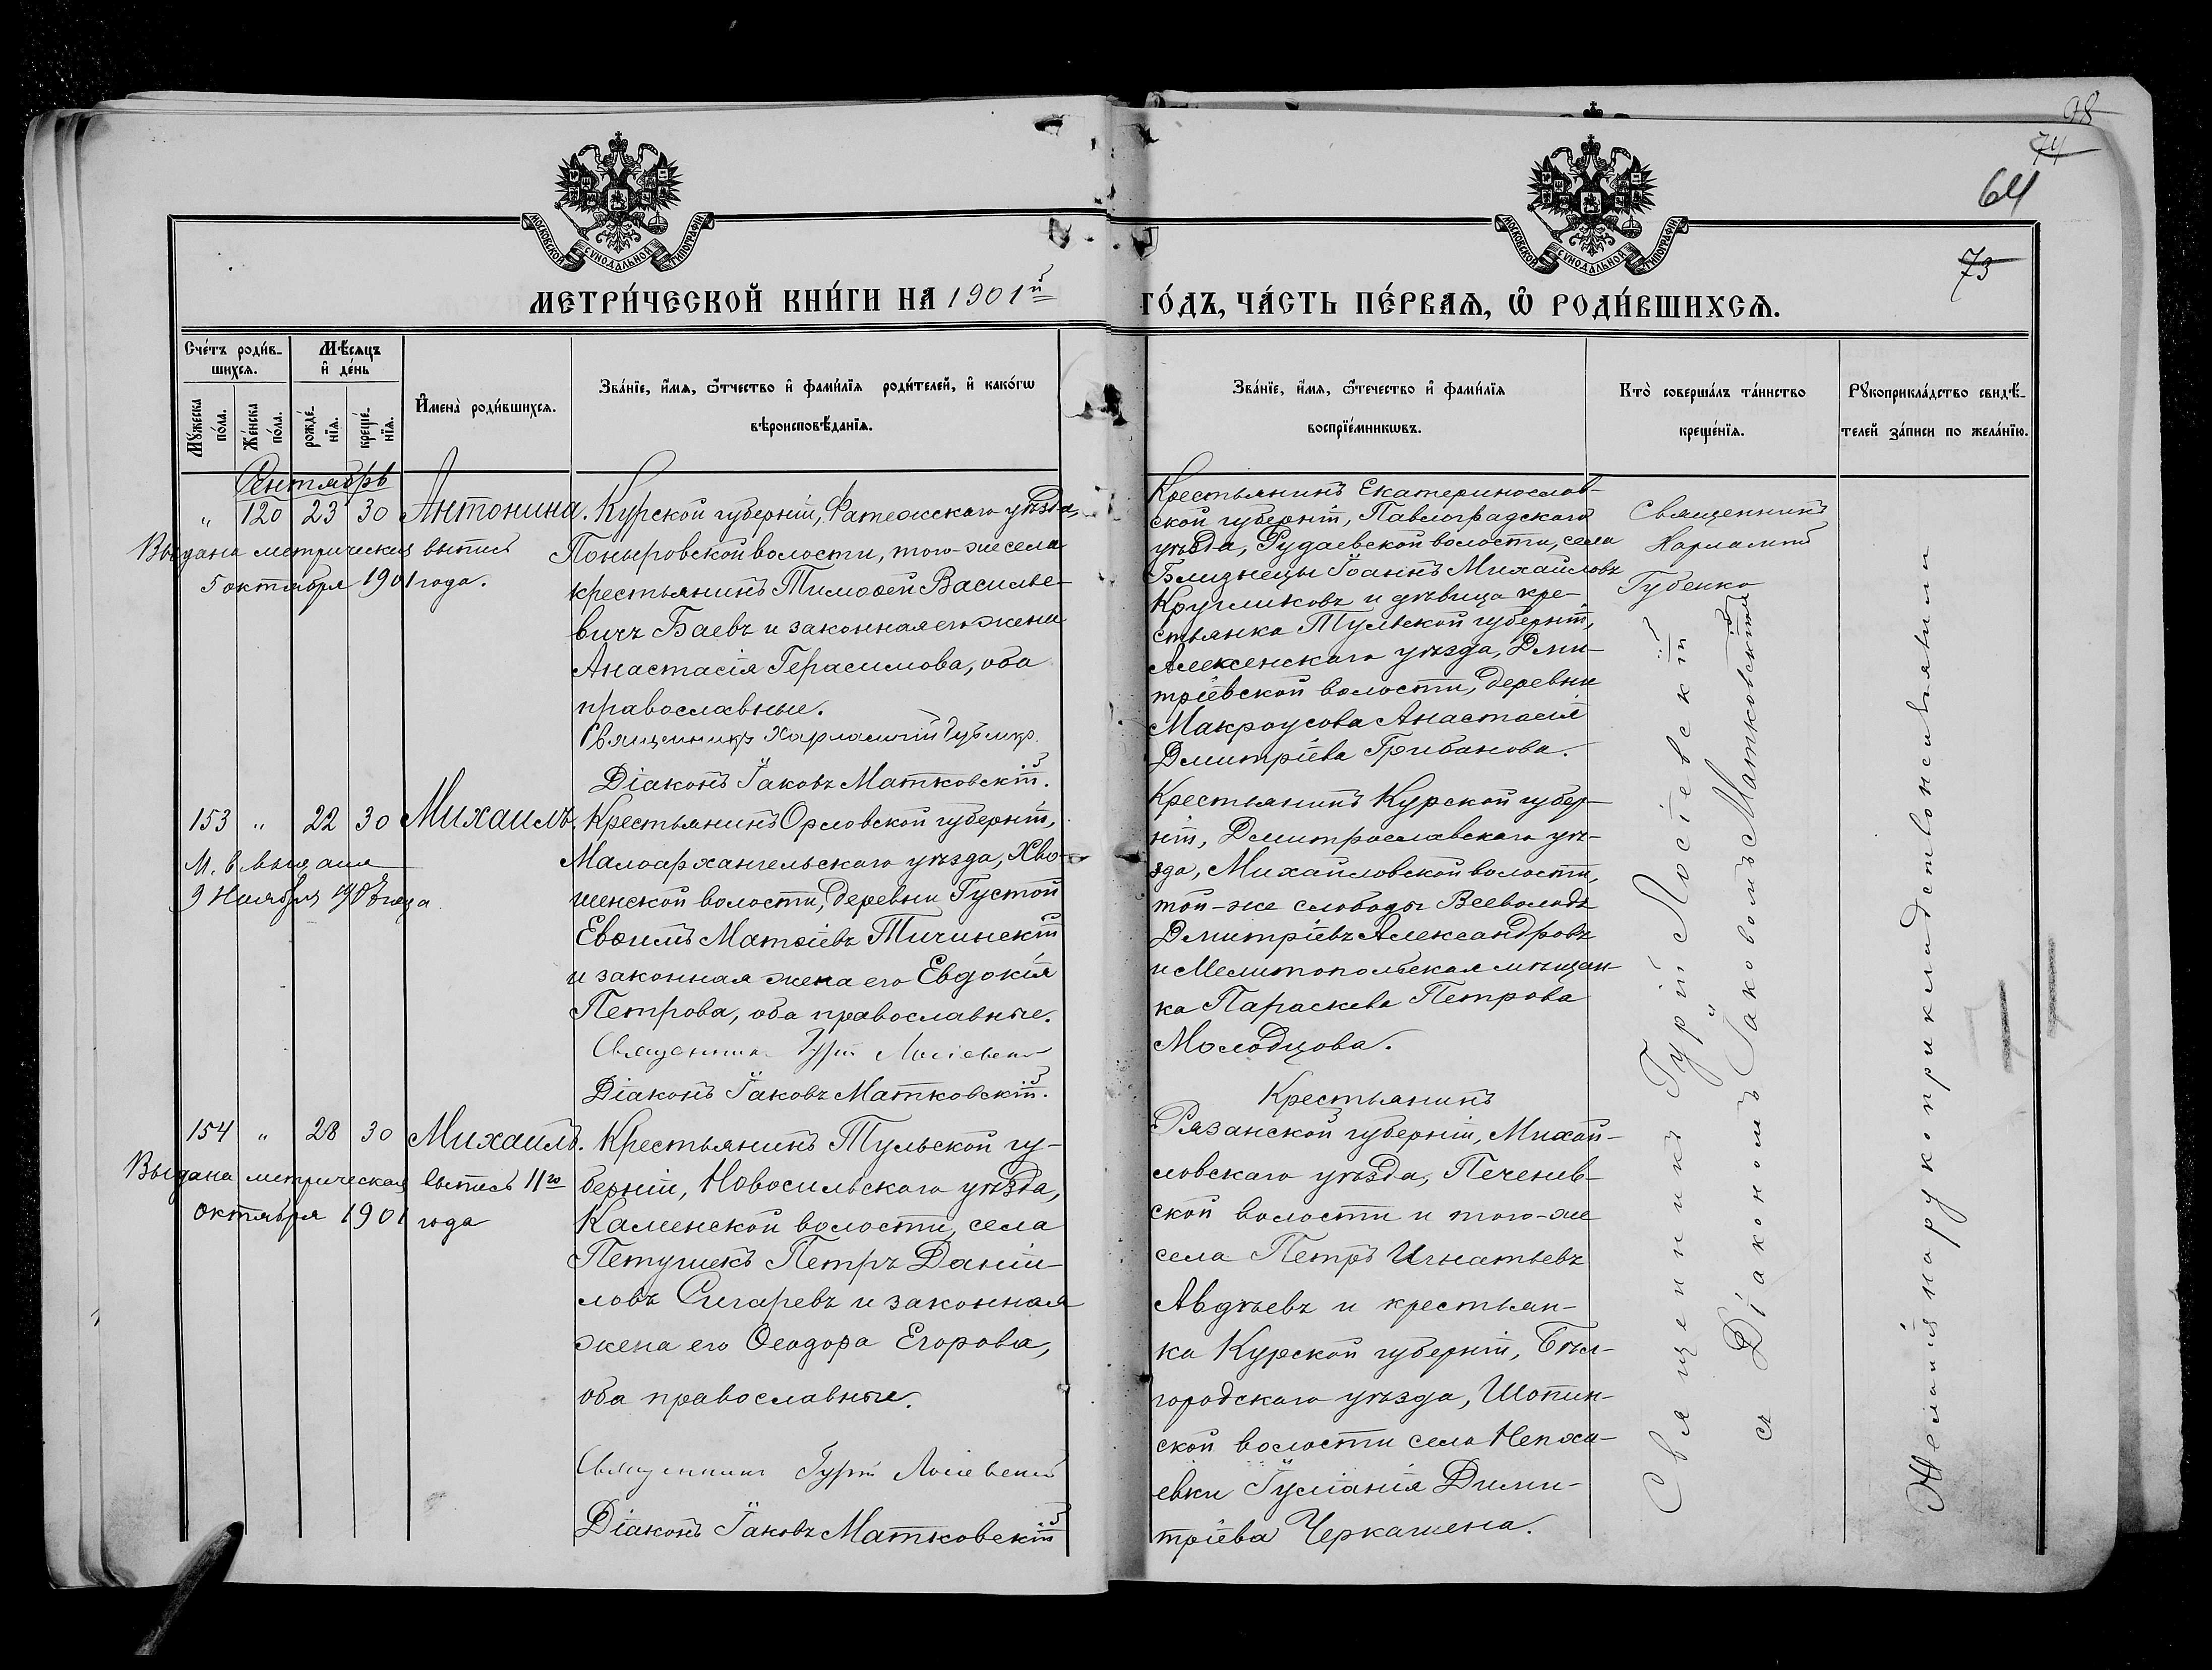 98
74
64
73
МОСКОВСКОЙ СѴНОДАЛЬНОЙ ТИПОГРАФІИ
МОСКОВСКОЙ СѴНОДАЛЬНОЙ ТИПОГРАФІИ
МЕТРИ́ЧЕСКОЙ КНИ́ГИ НА 1901й
ГО́ДЪ, ЧА́СТЬ ПЕ́РВАѦ, Ѡ҆ РОДИ́ВШИХСѦ.
Сче́тъ роди́в-
шихсѧ.
Мꙋ́жеска по́ла.
Же́нска по́ла.
Мѣ́сѧцъ
и҆ де́нь
рожде́-
нїѧ.
креще́-
нїѧ.
И҆мена̀ роди́вшихсѧ.
Зва́нїе, и҆́мѧ, ѻ҆́тчество и҆ фами́лїѧ роди́телей, и҆ како́гѡ
вѣроисповѣ́данїѧ.
Зва́нїе, и҆́мѧ, ѻ҆́течество и҆ фами́лїѧ
воспрїе́мникѡвъ.
Кто̀ соверша́лъ та́инство
креще́нїѧ.
Рꙋкоприкла́дство свидѣ́-
телей за́писи по жела́нїю.
Сентябрь
„ 120 23 30 Антонина.
Выдана метрическая выпись
5 октября 1901 года.
Курской губерніи, Фатежскаго уѣзда,
Поныровской волости, того-же села
крестьянинъ Тимоѳей Василье-
вичъ Баевъ и законная его жена
Анастасія Герасимова, оба
православные.
Священникъ Харлампій Губенко.
Діаконъ Іаковъ Матковскій.
Крестьянинъ Екатеринослав-
ской губерніи, Павлоградскаго
уѣзда, Рудаевской волости, села
Близнецы Іоаннъ Михайловъ
Кругликовъ и дѣвица кре-
стьянка Тульской губерніи,
Алексенскаго уѣзда, Дми-
тріевской волости, деревни
Макроусова Анастасія
Дмитріева Грибанова.
Священникъ
Харлампій
Губенко
153 „ 22 30 Михаилъ.
М. в. выдана
9 Ноября
Крестьянинъ Орловской губерніи,
Малоархангельскаго уѣзда, Хво-
щенской волости, деревни Густой
Евѳимъ Матѳіевъ Тичинскій
и законная жена его Евдокія
Петрова, оба православные.
Священникъ Гурій Лосіевскій
Діаконъ Іаковъ Матковскій.
Крестьянинъ Курской губер-
ніи, Дмитрославскаго уѣ-
зда, Михайловской волости,
той-же слободы Всеволодъ
Дмитріевъ Александровъ
и Мелитопольская мѣщан-
ка Параскева Петрова
Молодцова.
154 „ 28 30 Михаилъ.
Выдана метрическая выпись 11го
октября 1901 года
Крестьянинъ Тульской гу-
берніи, Новосильскаго уѣзда,
Каменской волости, села
Петушекъ Петръ Даніи-
ловъ Сигаревъ и законная
жена его Ѳеодора Егорова,
оба православные.
Священникъ Гурій Лосіевскій
Діаконъ Іаковъ Матковскій
Крестьянинъ
Рязанской губерніи, Михай-
ловскаго уѣзда, Печенѣв-
ской волости и того-же
села Петръ Игнатьевъ
Авдѣевъ и крестьян-
ка Курской губерніи, Бѣл-
городскаго уѣзда, Шопин-
ской волости села Непха-
евки Іуліанія Дими-
тріева Черкашена.
Священникъ Гурій Лосіевскій
съ Діакономъ Іаковомъ Матковскимъ